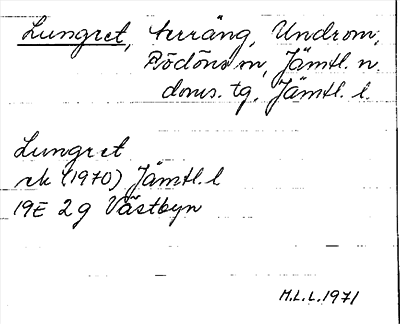 Lungret, terräng, Undrom,
Rödöns sn, Jämtl. n.
doms. tg, Jämtl. l.
Lungret
rk (1970) Jämtl. l
19E 2g Västbyn
M.L.L. 1971